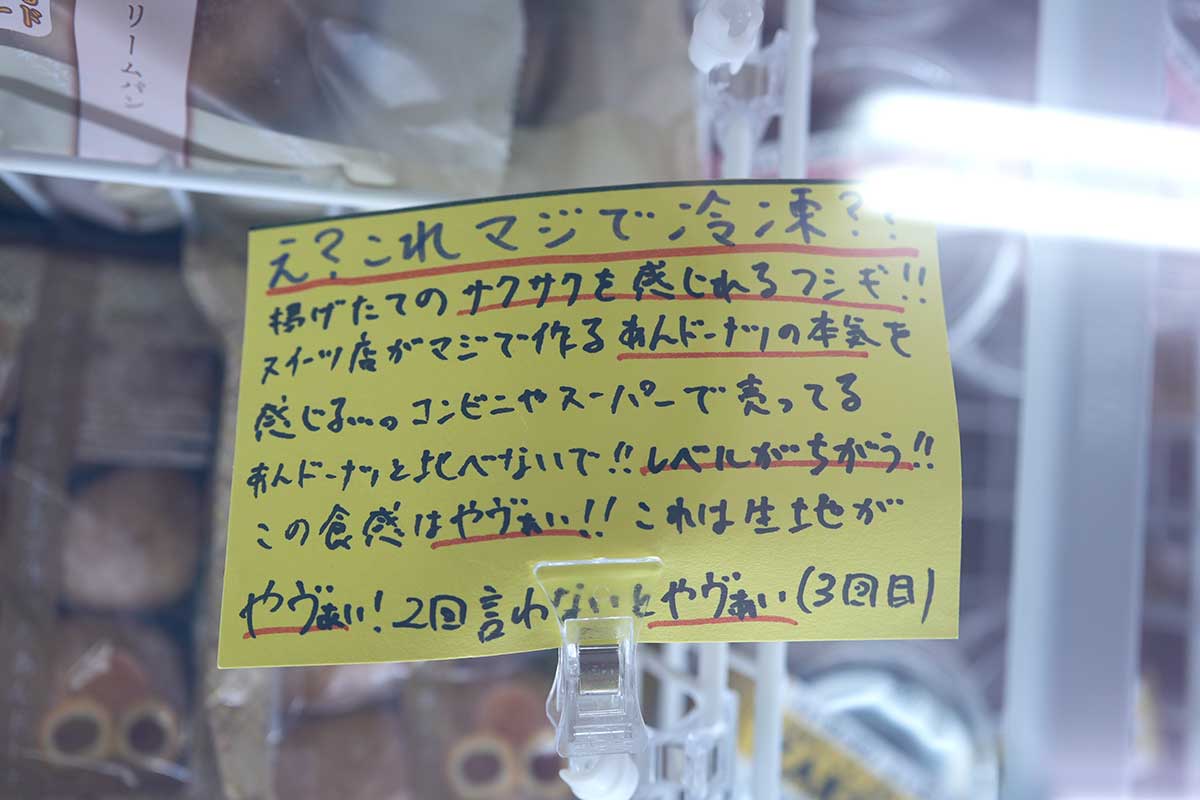 リームパン
え?これマジで冷凍??
揚げたてのサクサクを感じれるフシギ!!
スイーツ店がマジで作るあんドーナツの本気を
感じる…。コンビニやスーパーで売ってる
あんドーナツと比べないで!!レベルがちがう!!
この食感はやヴぁい!!これは生地が
やヴぁい!2回言わないとやヴぁい(3回目)